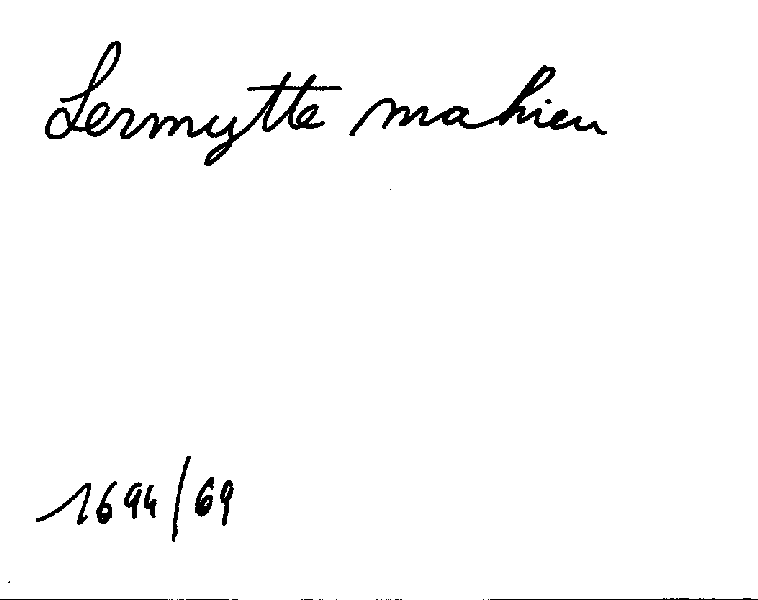 Lermytte mahieu
1694/69